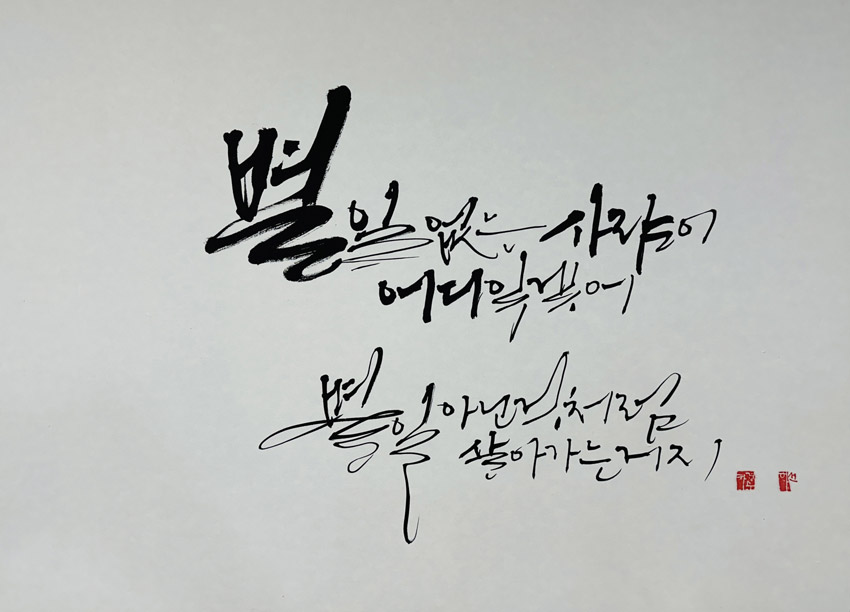 별일 없는 사람이
어디 있겠어
별일 아닌 것처럼
살아가는 거지